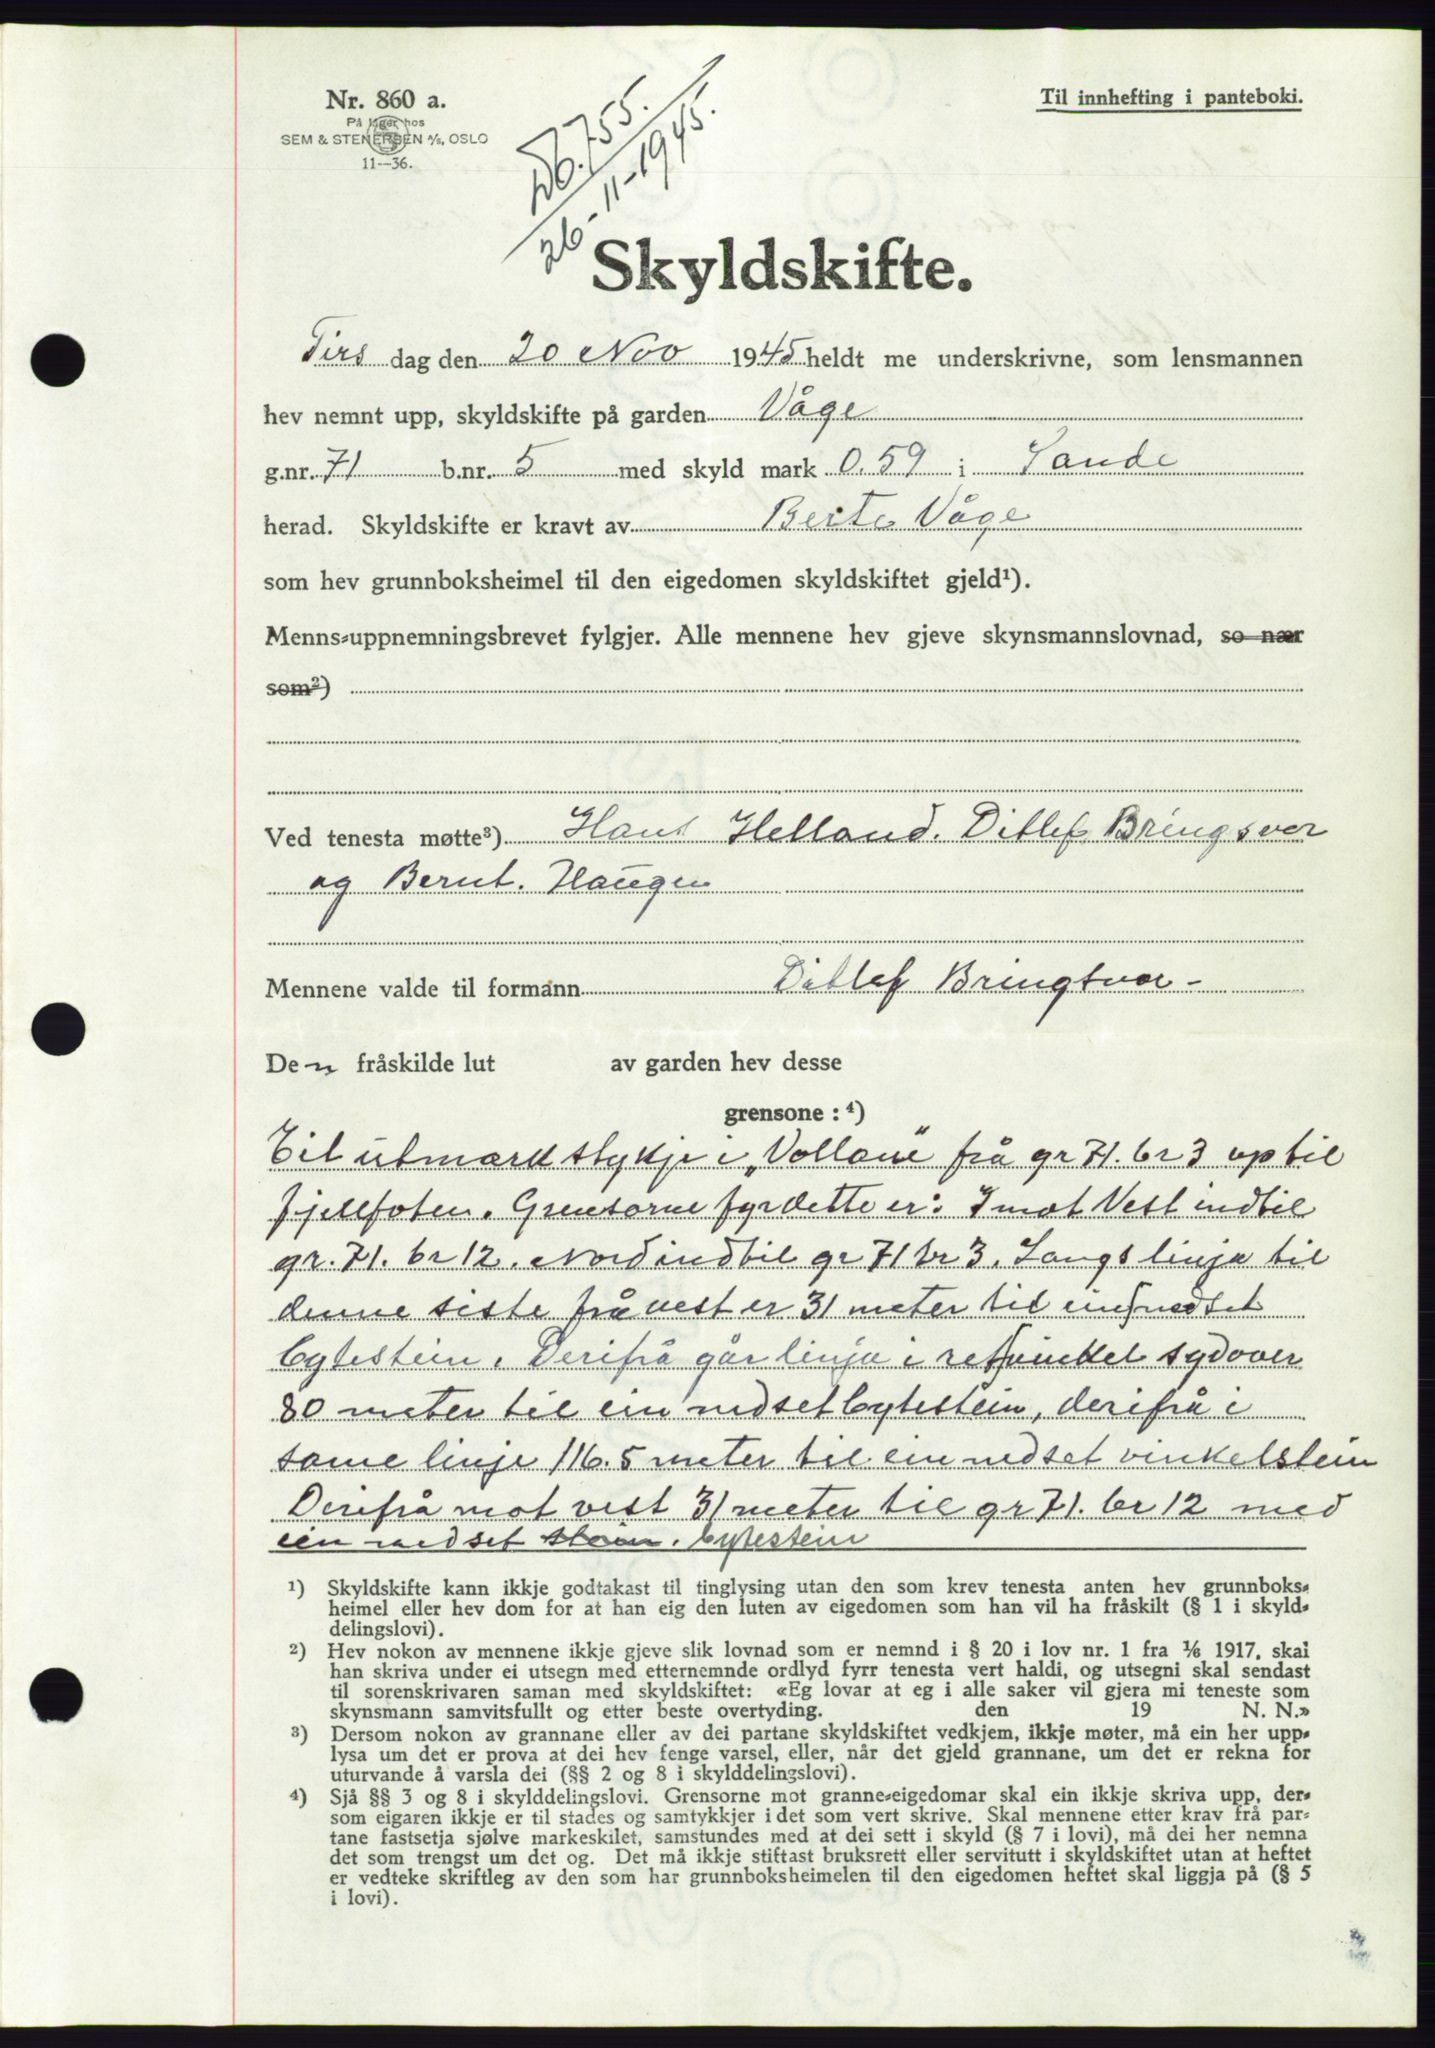 Nr. 860 a.
På lager hos
SEM & STENERSEN A/S, OSLO
11--36.
Til innhefting i panteboki.
Db. 755.
26-11-1945.
Skyldskifte.
Tirs dag den 20 Nov 1945 heldt me underskrivne, som lensmannen
hev nemnt upp, skyldskifte på garden Våge
g.nr. 71 b.nr. 5 med skyld mark 0.59 i Sande
herad. Skyldskifte er kravt av Berte Våge
som hev grunnboksheimel til den eigedomen skyldskiftet gjeld¹).
Menns-uppnemningsbrevet fylgjer. Alle mennene hev gjeve skynsmannslovnad, so nær
som²)
Ved tenesta møtte³) Hans Helland. Ditlef Bringsvor
og Bernt. Haugen
Mennene valde til formann Ditlef Bringsvor-
Den fråskilde lut av garden hev desse
grensone : ⁴)
Eit utmarkstykje i „Vollane“ frå gr 71. br 3 up til
fjellfoten. Grensorne fyr dette er: I mot Vest indtil
gr. 71. br 12. Nord indtil gr 71 br 3. Langs linja til
denne siste frå vest er 31 meter til ein nedset
bytestein. Derifrå går linja i retvinkel sydover
80 meter til ein nedset bytestein, derifrå i
same linje 116.5 meter til ein nedset vinkelstein
Derifrå mot vest 31 meter til gr 71. br 12 med
ein nedset stein. bytestein
¹) Skyldskifte kann ikkje godtakast til tinglysing utan den som krev tenesta anten hev grunnboks-
heimel eller hev dom for at han eig den luten av eigedomen som han vil ha fråskilt (§ 1 i skyld-
delingslovi).
²) Hev nokon av mennene ikkje gjeve slik lovnad som er nemnd i § 20 i lov nr. 1 fra 1/6 1917, skal
han skriva under ei utsegn med etternemnde ordlyd fyrr tenesta vert haldi, og utsegni skal sendast
til sorenskrivaren saman med skyldskiftet: «Eg lovar at eg i alle saker vil gjera mi teneste som
skynsmann samvitsfullt og etter beste overtyding. den 19 N. N.»
³) Dersom nokon av grannane eller av dei partane skyldskiftet vedkjem, ikkje møter, må ein her upp-
lysa um det er prova at dei hev fenge varsel, eller, når det gjeld grannane, um det er rekna for
uturvande å varsla dei (§§ 2 og 8 i skylddelingslovi).
⁴) Sjå §§ 3 og 8 i skylddelingslovi. Grensorne mot granne-eigedomar skal ein ikkje skriva upp, der-
som eigaren ikkje er til stades og samtykkjer i det som vert skrive. Skal mennene etter krav frå par-
tane fastsetja sjølve markeskilet, samstundes med at dei sett i skyld (§ 7 i lovi), må dei her nemna
det som trengst um det og. Det må ikkje stiftast bruksrett eller servitutt i skyldskiftet utan at heftet
er vedteke skriftleg av den som har grunnboksheimelen til den eigedomen heftet skal liggja på (§ 5
i lovi).